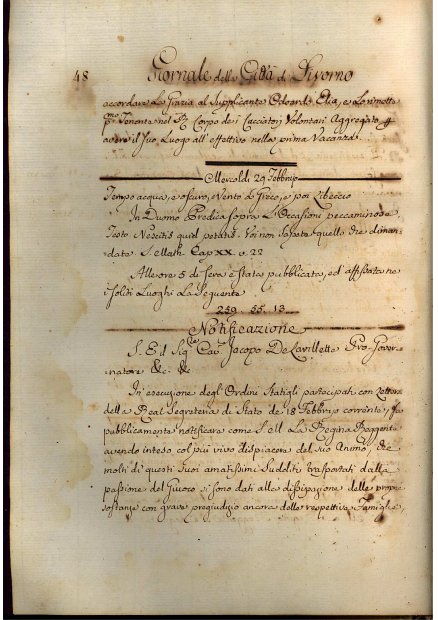 48 Giornale della Città di Livorno
accordare La Grazia al Supplicante Odoardo
Tenente nel R. Corpo dei Cacciatori Volontari Aggregato
avere il suo Luogo all' effettivo nella prima Vacanza
Mercoldì 29 Febbrio
Tempo acqua, e oscuro, Vento a Greco, e poi Libeccio
In Duomo Predica sopra L'Occasioni peccaminose
Testo Nescitis quid petatis. Voi non sapete quello che diman-
date S. Matth. Cap XX. v. 22
Alle ore 5 di sera è stata pubblicata, ed affissata ne
i soliti Luoghi La Seguente
259. 55. 13
Notificazione
S. E. il Sig.re Cav. Jacopo De Lavillette Pro-Gover-
natore &c. &c
In esecuzione degli Ordini Statigli partecipati con Lettera
della Real Segreteria di Stato de 18 Febbrio corrente, fa
pubblicamente notificare come S. M La Regina Reggente
avendo inteso col più vivo dispiacere del suo Animo, che
molti di questi Suoi amatissimi Sudditi trasportati dalla
passione del Giuoco si sono dati alla dissipazione delle proprie
sostanze con grave pregiudizio ancora delle respettive Famiglie,